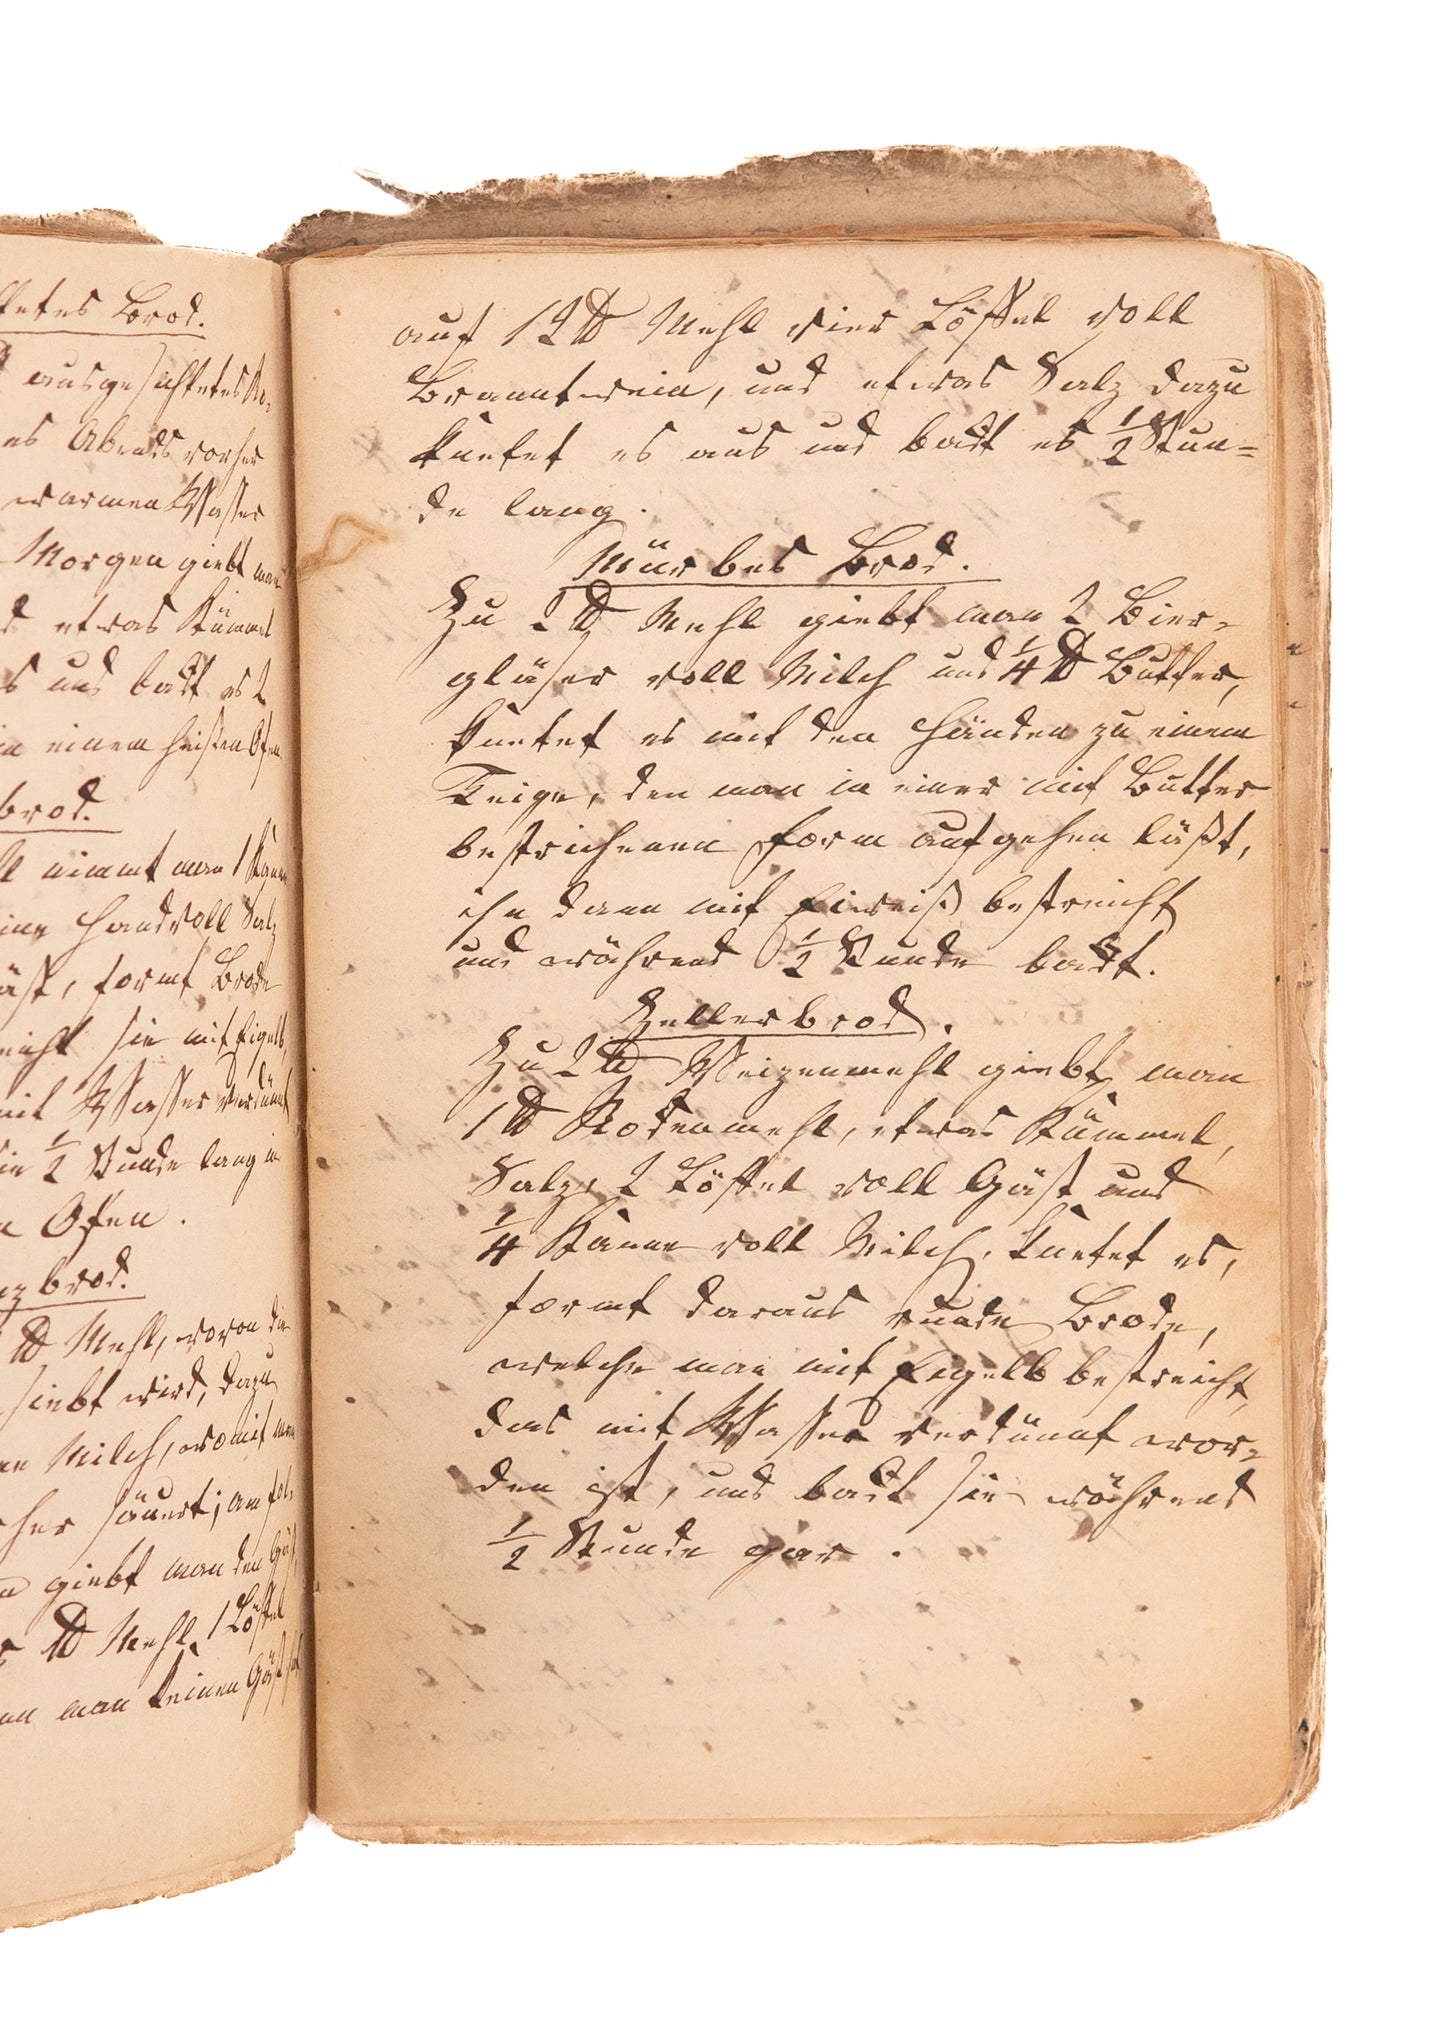 tetes Brod.
ausgesichtetes Ro-
es Abends vorher
warmen Wasser
Morgen giebt man
d etwas Kümmel
s und backt es 2
in einem heißen Ofen
brod.
nimmt man 1 Kanne
eine Handvoll Salz
äst, formt Brode
eicht sie mit Eigelb,
mit Wasser verdünnt
sie ½ Stunde lang in
n Ofen.
brod.
℔ Mehl, wovon die
siebt wird, dazu
Milch, womit man
her säuert; am fol-
giebt man den Gäst,
℔ Mehl 1 Löffel
man keinen Gäst hat
auf 12 ℔ Mehl vier Löffel voll
Branntwein, und etwas Salz dazu
knetet es aus und backt es ½ Stun=
de lang.
Mürbes Brod.
Zu 2 ℔ Mehl giebt man 2 Bier-
gläser voll Milch und ¼ ℔ Butter,
knetet es mit den Händen zu einem
Teige, den man in einer mit Butter
bestrichenen Form aufgehen läßt,
ihn dann mit Eiweiß bestreicht
und während ½ Stunde backt.
Zellerbrod.
Zu 2 ℔ Weizenmehl giebt man
1 ℔ Rokenmehl, etwas Kümmel,
Salz, 2 Löffel voll Gäst und
¼ Kanne voll Milch, knetet es,
formt daraus runde Brode,
welche man mit Eigelb bestreicht,
das mit Wasser verdünnt wor-
den ist, und backt sie während
½ Stunde gar.